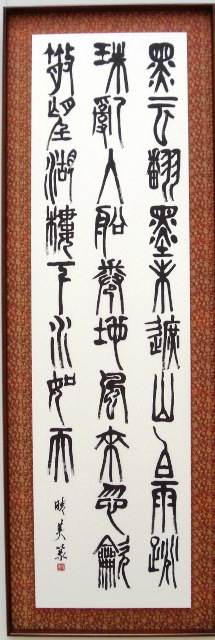 黑云翻墨未遮山白雨跳
珠亂入船卷地風來忽龡
散望湖樓下水如天
美篆